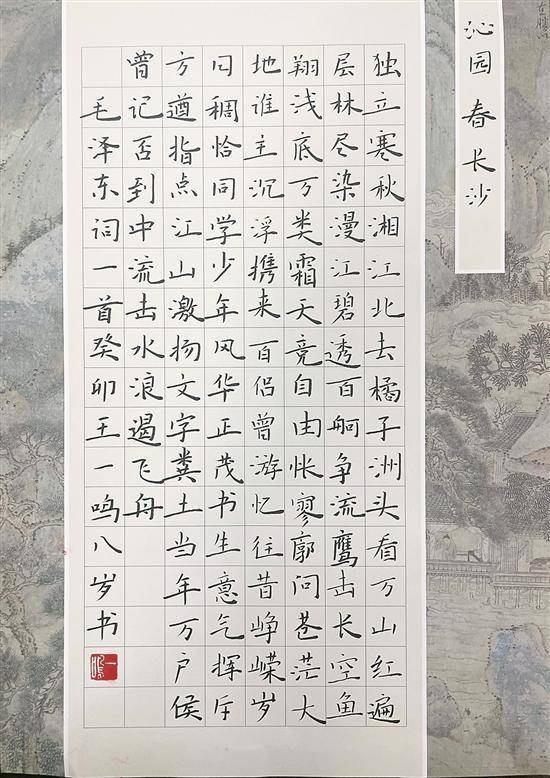 沁园春长沙
独立寒秋湘江北去橘子洲头看万山红遍
层林尽染漫江碧透百舸争流鹰击长空鱼
翔浅底万类霜天竞自由怅寥廓问苍茫大
地谁主沉浮携来百侣曾游忆往昔峥嵘岁
月稠恰同学少年风华正茂书生意气挥斥
方遒指点江山激扬文字粪土当年万户侯
曾记否到中流击水浪遏飞舟
毛泽东词一首癸卯王一鸣八岁书
一鸣